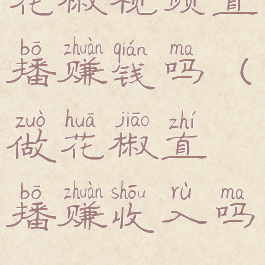 花椒视频直
bō zhuàn qián ma
播赚钱吗（
zuò huā jiāo zhí
做花椒直
bō zhuàn shōu rù ma
播赚收入吗